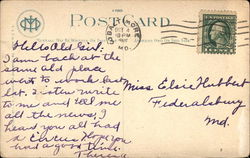 POSTCARD
OCT 4
MD.
Hello Old Girl:
I am back at the
same old place
went to work
1st. Sister write
to me and tell me
all the news, I
heard you all had
a
had a good time.
Theresa
Miss Elsie Hubbert
Federalsburg
Md.